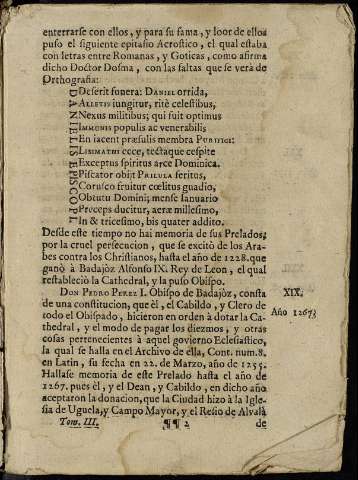 enterrarse con ellos, y para su fama, y loor de ellos
puso el siguiente epitafio Acrostico, el qual estaba
con letras entre Romanas, y Goticas, como afirma
dicho Doctor Dosma, con las faltas que se verà de
Orthografia:
Deserit funera: DANIEL orrida,
ALLETIS iungitur, ritè celestibus,
Nexus militibus; qui fuit optimus
IMMUNIS populis ac venerabilis
En iacent præsulis membra PURIFICI:
LISIMATHI ecce, tectaque cespite
Exceptus spiritus arce Dominica.
Piscator obijt PRILULA feritus,
Corusco fruitur cœlitus guadio,
Obtutu Domini; mense Ianuario
Præceps ducitur, aeræ millesimo,
In & tricesimo, bis quater addito.
DANIELL EPISCOPI
Desde este tiempo no hai memoria de sus Prelados,
por la cruel persecucion, que se excitò de los Ara-
bes contra los Christianos, hasta el año de 1228. que
ganò à Badajòz Alfonso IX. Rey de Leon, el qual
restableciò la Cathedral, y la puso Obispo.
DON PEDRO PEREZ I. Obispo de Badajòz, consta
de una constitucion, que èl, el Cabildo, y Clero de
todo el Obispado, hicieron en orden à dotar la Ca-
thedral, y el modo de pagar los diezmos, y otras
cosas pertenecientes à aquel govierno Eclesiastico,
la qual se halla en el Archivo de ella, Cont. num. 8.
en Latin, su fecha en 22. de Marzo, año de 1255.
Hallase memoria de este Prelado hasta el año de
1267. pues èl, y el Dean, y Cabildo, en dicho año
aceptaron la donacion, que la Ciudad hizo à la Igle-
sia de Uguela, y Campo Mayor, y el Resio de Alvalà
Tom. III. ¶¶ 2 de
XIX.
Año 1267